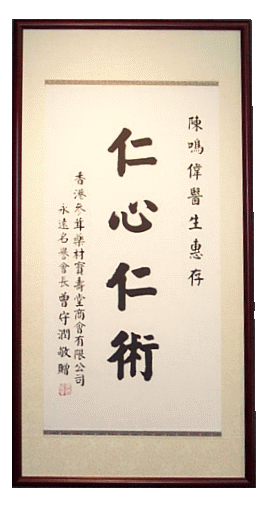 陳鳴偉醫生惠存
仁心仁術
香港參茸藥材寶壽堂商會有限公司
永遠名譽會長曾守潤敬贈